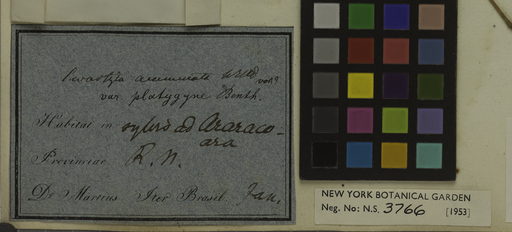 acuminata
var. platygyne Benth.
Habitat in sylvis ad Araraco-
ara
Provinciae R. N.
Dr Martius Iter Brasil. Jan.
NEW YORK BOTANICAL GARDEN
Neg. No: N.S. 3766 [1953]